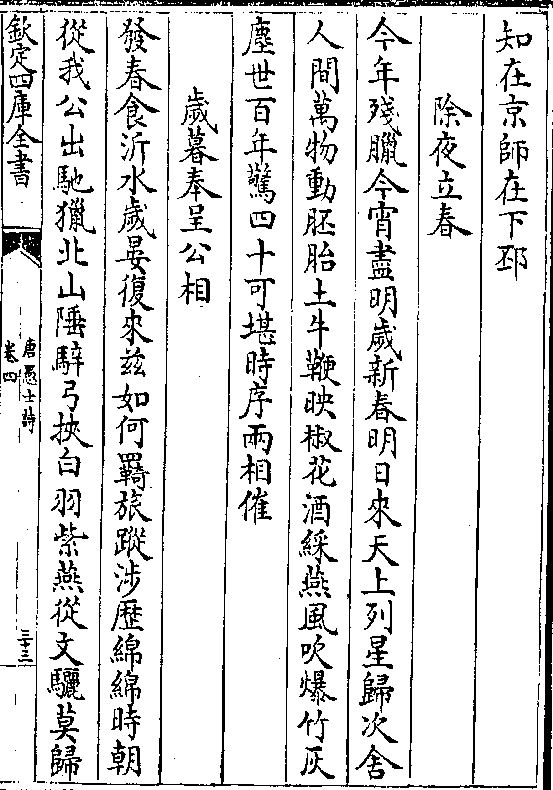 知在京師在下邳
除夜立春
今年殘臘今宵盡明歲新春明日來天上列星歸次舍
人間萬物動胚胎土牛鞭映椒花酒綵燕風吹爆竹灰
塵世百年驚四十可堪時序兩相催
歲暮奉呈公相
發春食沂水歲晏復來兹如何羇旅蹤涉歷綿綿時朝
從我公出馳獵北山陲騂弓挾白羽紫燕從文驪莫歸
欽定四庫全書
唐愚士詩
卷四
三十三